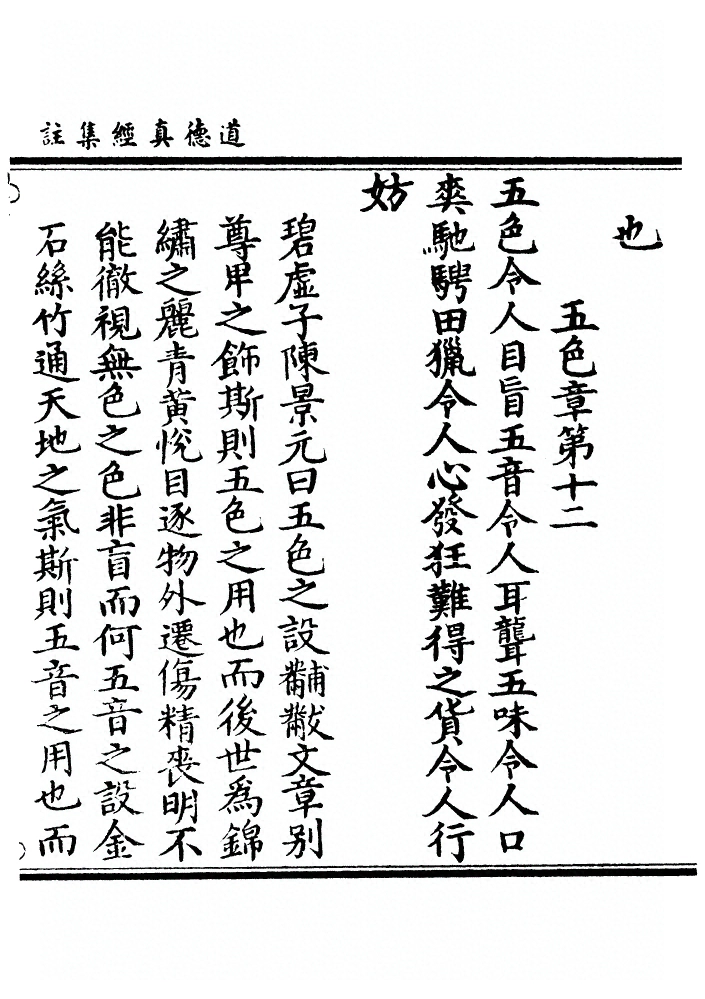 道德真經集註
也
五色章第十二
五色令人目盲五音令人耳聾五味令人口
爽馳騁田獵令人心發狂難得之貨令人行
妨
碧虛子陳景元曰五色之設黼黻文章别
尊卑之飾斯則五色之用也而後世爲錦
繡之麗青黃悅目逐物外遷傷精喪明不
能徹視無色之色非盲而何五音之設金
石絲竹通天地之氣斯則五音之用也而